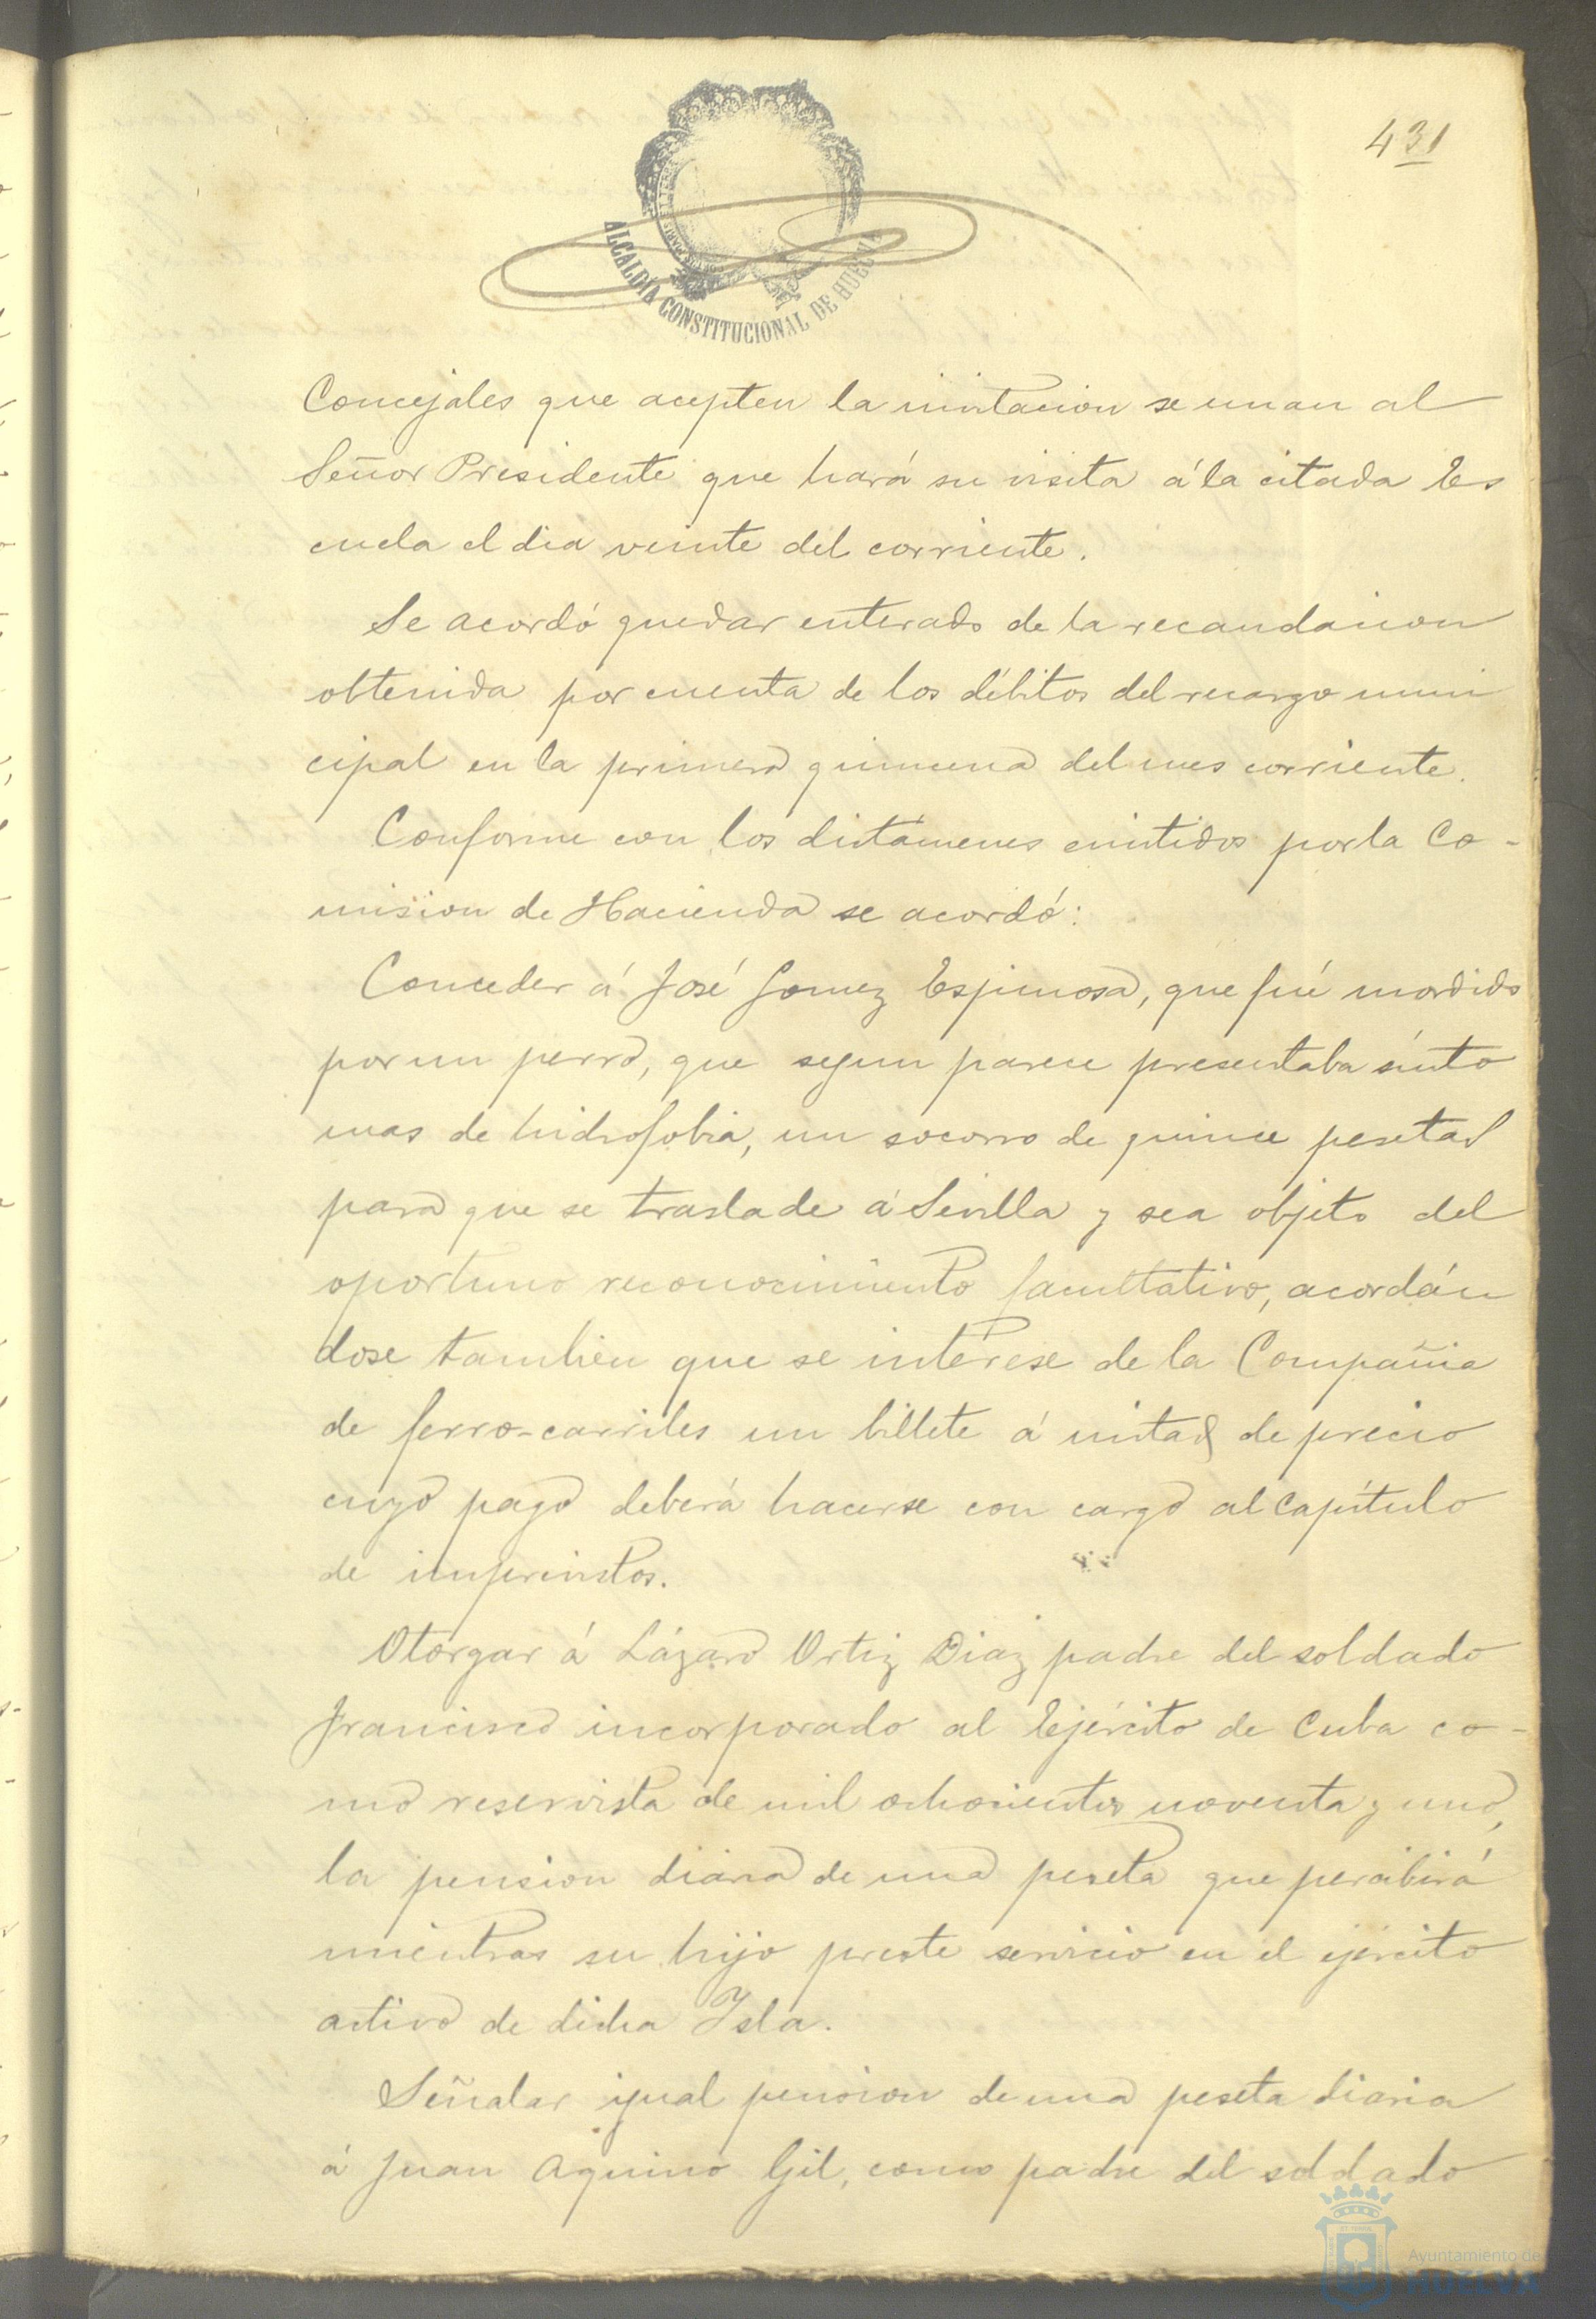 431
ALCALDÍA CONSTITUCIONAL DE HUELVA
Concejales que acepten la invitacion se unan al
Señor Presidente que hará su visita á la citada Es
cuela el dia veinte del corriente.
Se acordó quedar enterado de la recaudacion
obtenida por cuenta de los débitos del recargo muni
cipal en la primera quincena del mes corriente.
Conforme con los dictámenes emitidos por la Co-
mision de Hacienda se acordó:
Conceder á José Gomez Espinosa, que fué mordido
por un perro, que segun parece presentaba sínto
mas de hidrofobia, un socorro de quince pesetas
para que se traslade á Sevilla y sea objeto del
oportuno reconocimiento facultativo, acordán
dose tambien que se interese de la Compañia
de ferro-carriles un billete á mitad de precio
cuyo pago deberá hacerse con cargo al Capítulo
de imprevistos.
Otorgar á Lázaro Ortiz Diaz padre del soldado
Francisco incorporado al Ejército de Cuba co-
mo reservista de mil ochocientos noventa y uno,
la pension diaria de una peseta que percibirá
mientras su hijo preste servicio en el ejército
activo de dicha Isla.
Señalar igual pension de una peseta diaria
á Juan Aquino Gil, como padre del soldado
Ayuntamiento de
HUELVA